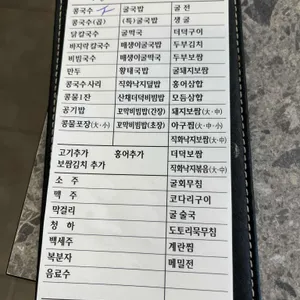 콩국수 굴국밥 굴 전
콩국수(곱) (특)굴국밥 생굴
닭칼국수 굴떡국 더덕구이
바지락칼국수 매생이굴국밥 두부김치
비빔국수 매생이굴떡국 두부보쌈
만두 황태국밥 굴보쌈(大·中)
콩국수사리 직화낙지덮밥 홍어삼합
콩물1잔 산채더덕비빔밥 모듬삼합
공기밥 꼬막비빔밥(간장) 돼지보쌈(大·小)
콩물포장(大·小) 꼬막비빔밥(초장) 아구찜(大·中·小)
고기추가 홍어추가 더덕보쌈
보쌈김치 추가 직화낙지볶음(大·中)
소 주 굴회무침
맥 주 코다리구이
막걸리 굴 술국
청 하 도토리묵무침
백세주 계란찜
복분자 메밀전
음료수